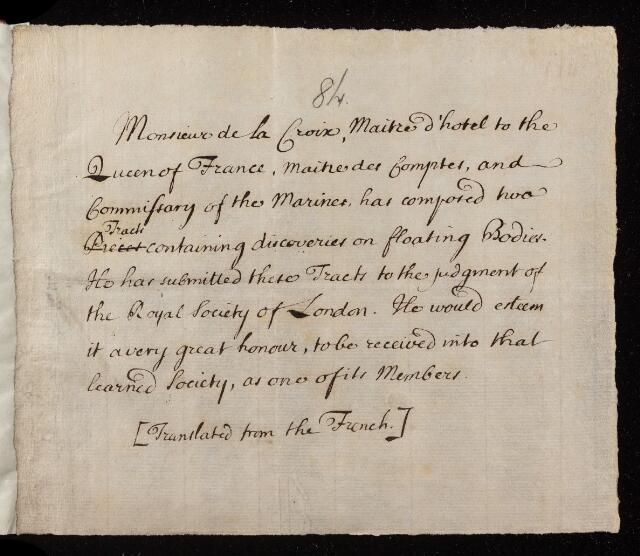 84.
Monsieur de la Croix, Maitre d'hotel to the
Queen of France, Maitre des Comptes, and
Commissary of the Marines, has composed two
Tracts
Pieces containing discoveries on floating Bodies.
He has submitted these Tracts to the judgment of
the Royal Society of London. He would esteem
it a very great honour, to be received into that
learned Society, as one of its Members.
[Translated from the French.]